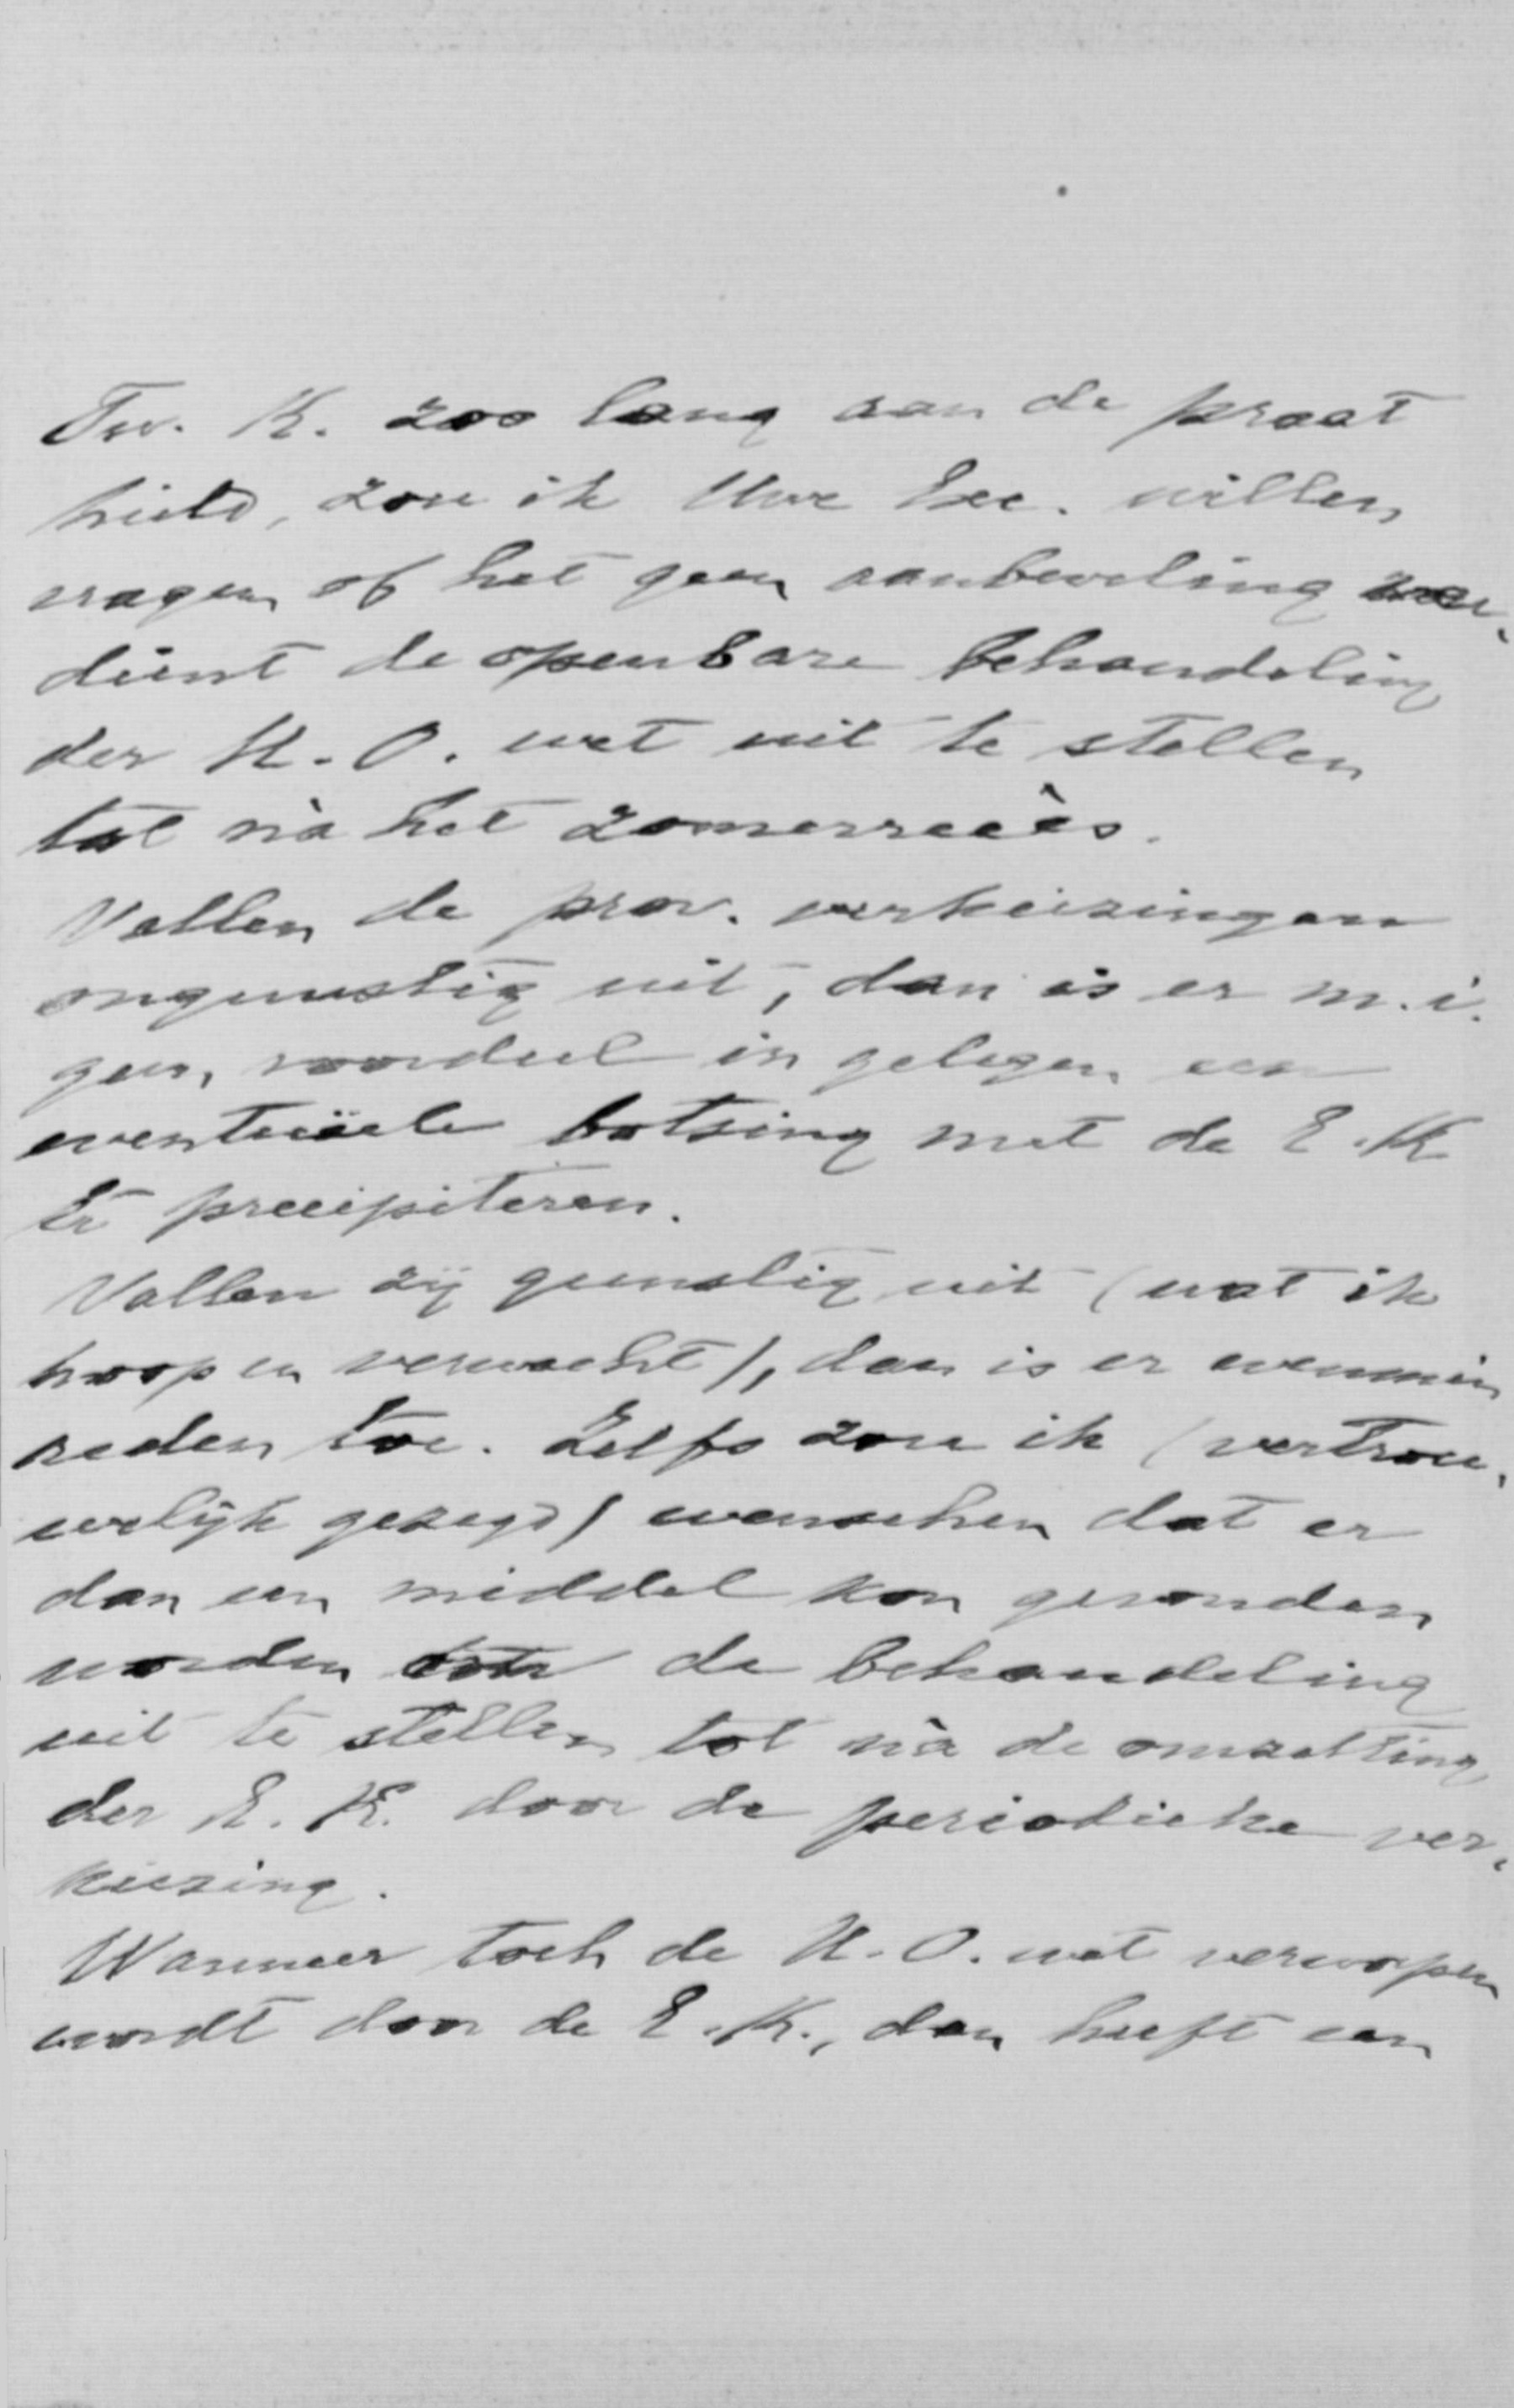 Tw. K. zoo lang aan de praat
hield, zou ik Uwe Exc. willen
vragen of het geen aanbeveling ver-
dient de openbare behandeling
der H. O. wet uit te stellen
tot nà het zomerrecès.
Vallen de prov. verkiezingen
ongunstig uit, dan is er m. i.
geen voordeel in gelegen een
eventuëele botsing met de E. K
te precipiteren.
Vallen zij gunstig uit (wat ik
hoop en verwacht), dan is er evenmin
reden toe. Zelfs zou ik (vertrou-
welijk gezegd) wenschen dat er
dan een middel kon gevonden
worden om de behandeling
uit te stellen tot nà de omzetting
der E. K. door de periodieke ver-
kiezing.
Wanneer toch de H. O. wet verworpen
wordt door de E. K., dan heeft een